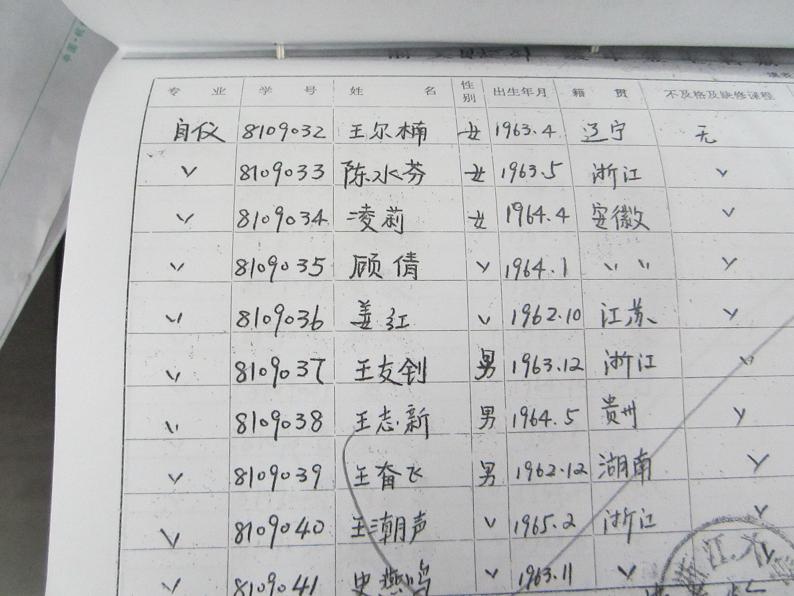 专 业 学 号 姓 名 性别 出生年月 籍 贯 不及格及缺修课程
自仪 8109032 王尔楠 女 1963.4 辽宁 无
〃 8109033 陈水芬 女 1963.5 浙江 〃
〃 8109034 凌莉 女 1964.4 安徽 〃
〃 8109035 顾倩 〃 1964.1 〃 〃 〃
〃 8109036 姜红 〃 1962.10 江苏 〃
〃 8109037 王友钊 男 1963.12 浙江 〃
〃 8109038 王志新 男 1964.5 贵州 〃
〃 8109039 王奋飞 男 1962.12 湖南 〃
〃 8109040 王潮声 〃 1965.2 浙江 〃
〃 8109041 史燕鸣 〃 1963.11 〃 〃
浙江大